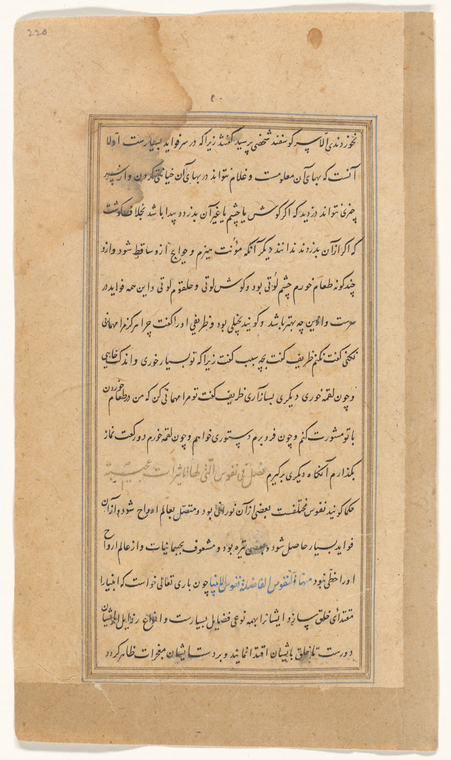 220
نخوردندی الا سر گوسفند شخصی پرسید گفتند زیرا که در سر فواید بسیارست اولا
آنست که بهای آن معلومست و غلام نتواند در بهای آن خیانتی کردن و از سر
چیزی نتواند دزدید که اگر گوش یا چشم یا غیر آن بدزدد پیدا باشد بخلاف گوشت
که اگر از آن بدزدند ندانند دیگر آنکه مؤنت هیزم و حوایج ازو ساقط شود و ازو
چند گونه طعام خورم چشم لونی بود و گوش لونی و حلقوم لونی و این همه فواید در
سرست و ازین چه بهتر باشد و گویند بخیلی بود و ظریفی او را گفت چرا هرگز مرا مهمانی
نکنی گفت نکنم ظریف گفت بچه سبب گفت زیرا که تو بسیار خوری و اندک خایی
و چون لقمه خوری دیگری بسازی ظریف گفت تو مرا مهمانی کن که من در طعام خوردن
با تو مشورت کنم و چون فرو برم دستوری خواهم و چون لقمه خورم دو رکعت نماز
بگذارم آنگاه دیگری برگیرم فصل فی نفوس التی لها تاثیرات عجیبة
حکما گویند نفوس مختلفست بعضی از آن نورانی بود و متصل بعالم ارواح شود و از آن
فواید بسیار حاصل شود و بعضی تیره بود و مشعوف بجسمانیات و از عالم ارواح
او را خطی نبود منها النفوس الفاضلة نفوس الانبیا چون باری تعالی خواست که انبیا را
مقتدای خلق سازد ایشانرا بهمه نوعی فضایل بیاراست و انواع رذایل از ایشان
دور ست تا خلق بایشان اقتدا نمایند و بر دست ایشان معجزات ظاهر کرد